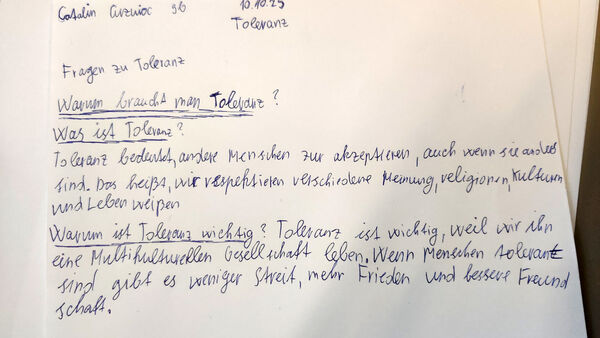 Catalin 9b 10.10.25
Toleranz
Fragen zu Toleranz
Warum braucht man Toleranz?
Was ist Toleranz?
Toleranz bedeutet, andere Menschen zur akzeptieren, auch wenn sie anders
sind. Das heißt, wir respektieren verschiedene Meinung, religionen, Kulturen
und Leben weißen
Warum ist Toleranz wichtig? Toleranz ist wichtig, weil wir ihn
eine Multikulturellen Gesellschaft leben. Wenn Menschen tolerant
sind gibt es weniger Streit, mehr Frieden und bessere Freund
schaft.